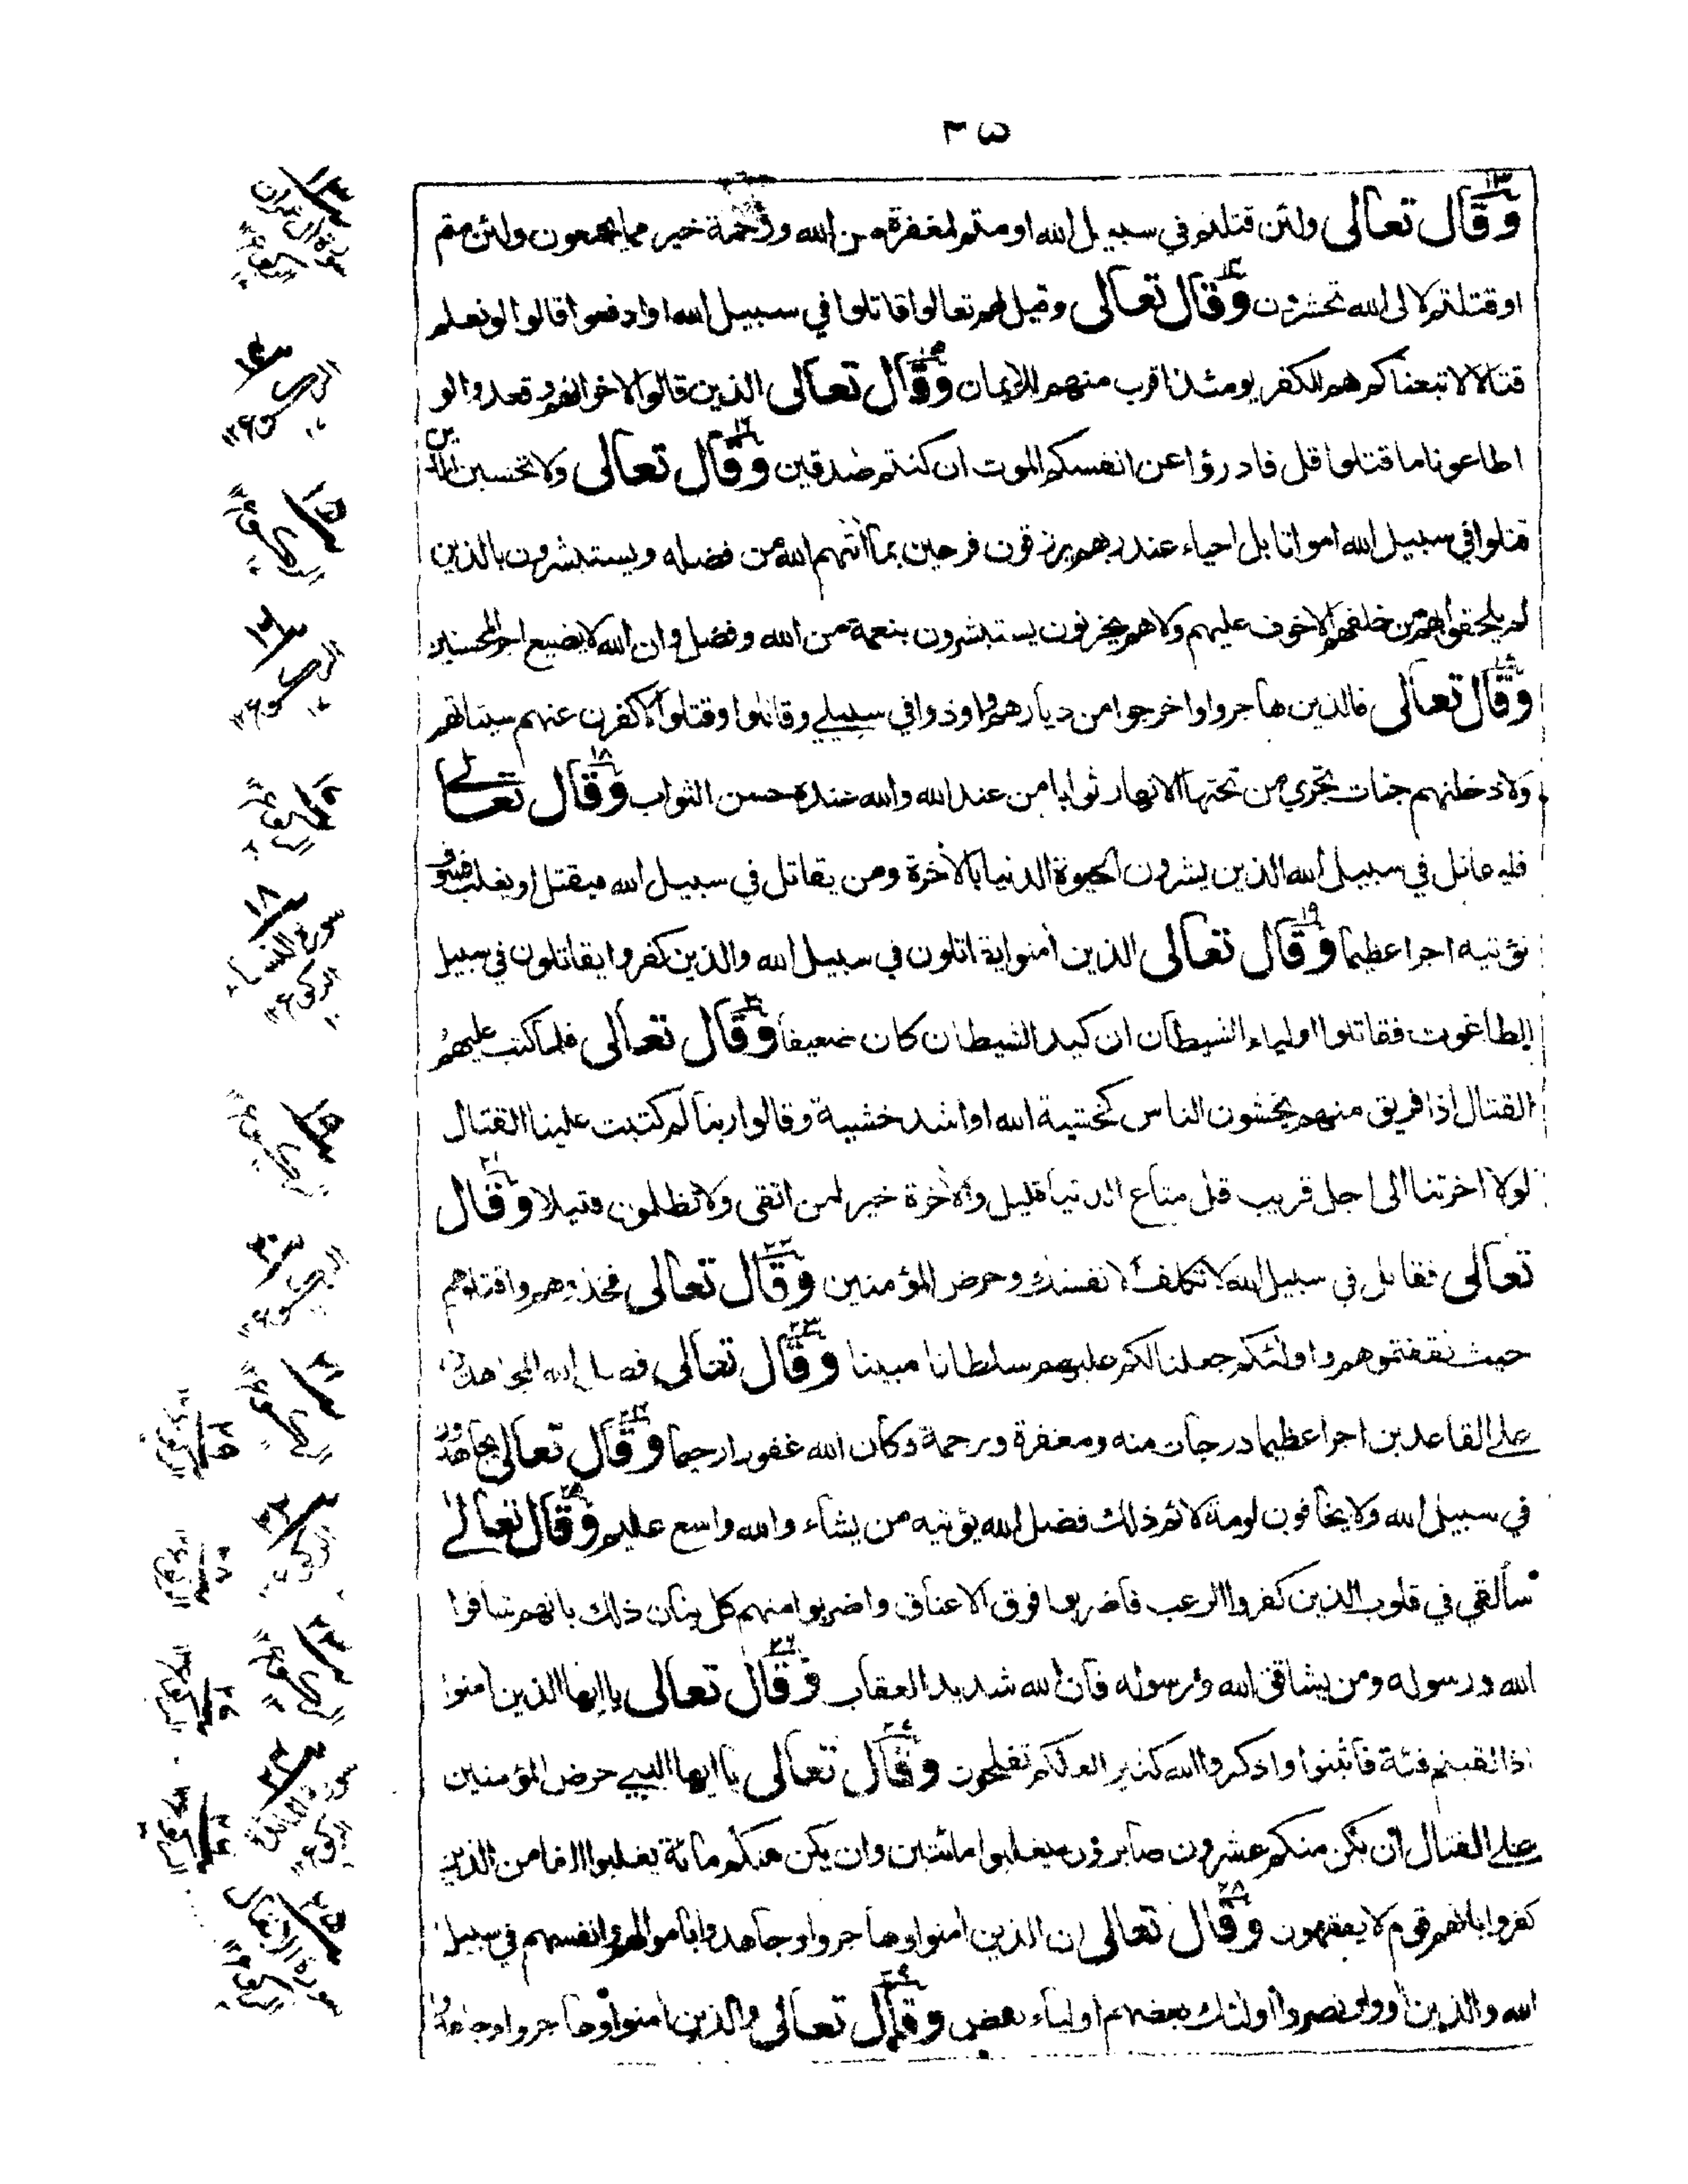 ٣٥
١٣ وقال تعالى ولئن قتلتم في سبيل الله او متم لمغفرة من الله ورحمة خير مما يجمعون ولئن متم
او قتلتم لا لى الله تحشرون ١٤ وقال تعالى وقيل لهم تعالوا قاتلوا في سبيل الله اوادفعوا قالوا لو نعلم
قتالا لا تبعناكم هم للكفر يومئذ اقرب منهم للايمان ١٥ وقال تعالى الذين قالوا لاخوانهم وقعدوا لو
اطاعونا ما قتلوا قل فادرؤا عن انفسكم الموت ان كنتم صدقين ١٦ وقال تعالى ولا تحسبن الذين
قتلوا في سبيل الله امواتا بل احياء عند ربهم يرزقون فرحين بما اتهم الله من فضله ويستبشرون بالذين
لم يلحقوا بهم من خلفهم الاخوف عليهم ولا هم يحزنون يستبشرون بنعمة من الله وفضل وان الله لا يضيع اجر المحسنين
وقال تعالى فالذين هاجروا واخرجوا من ديارهم واوذوا في سبيلي وقاتلوا وقتلوا لاكفرن عنهم سيئاتهم
ولادخلنهم جنات تجري من تحتها الانهار ثوابا من عند الله والله عنده حسن الثواب ١٨ وقال تعالى
فليقاتل في سبيل الله الذين يشرون الحيوة الدنيا بالاخرة ومن يقاتل في سبيل الله فيقتل او يغلب فسوف
نؤتيه اجرا عظيما ١٩ وقال تعالى الذين امنوا يقاتلون في سبيل الله والذين كفروا يقاتلون في سبيل
الطاغوت فقاتلوا اولياء الشيطان ان كيد الشيطان كان ضعيفا ٢٠ وقال تعالى فلما كتب عليهم
القتال اذا فريق منهم يخشون الناس كخشية الله او اشد خشية وقالوا ربنا لم كتبت علينا القتال
لولا اخرتنا الى اجل قريب قل متاع الدنيا قليل والاخرة خير لمن اتقى ولا تظلمون فتيلا ٢١ وقال
تعالى فقاتل في سبيل الله لا تكلف الا نفسك وحرض المؤمنين ٢٢ وقال تعالى فخذوهم واقتلوهم
حيث ثقفتموهم واولئكم جعلنا لكم عليهم سلطانا مبينا ٢٣ وقال تعالى فضل الله المجاهدين
على القاعدين اجرا عظيما درجات منه ومغفرة ورحمة وكان الله غفورا رحيما ٢٤ وقال تعالى يجاهدون
في سبيل الله ولا يخافون لومة لائم ذلك فضل الله يؤتيه من يشاء والله واسع عليم ٢٥ وقال تعالى
سألقي في قلوب الذين كفروا الرعب فاضربوا فوق الاعناق واضربوا منهم كل بنان ذلك بانهم شاقوا
الله ورسوله ومن يشاقق الله ورسوله فان الله شديد العقاب ٢٦ وقال تعالى يا ايها الذين امنوا
اذا لقيتم فئة فاثبتوا واذكروا الله كثير العلكم تفلحون وقال تعالى يا ايها النبي حرض المؤمنين
على القتال ان يكن منكم عشرون صابرون يغلبوا مائتين وان يكن منكم مائة يغلبوا الفا من الذين
كفروا بانهم قوم لا يفقهون ٢٨ وقال تعالى ان الذين امنوا وهاجروا وجاهدوا باموالهم وانفسهم في سبيل
الله والذين اووا ونصروا اولئك بعضهم اولياء بعض وقال تعالى والذين امنوا وهاجروا وجاهدوا
١٣
١٤
١٥
١٨
سورة النساء
٢٠
سورة المائدة
٢٥
سورة الانفال